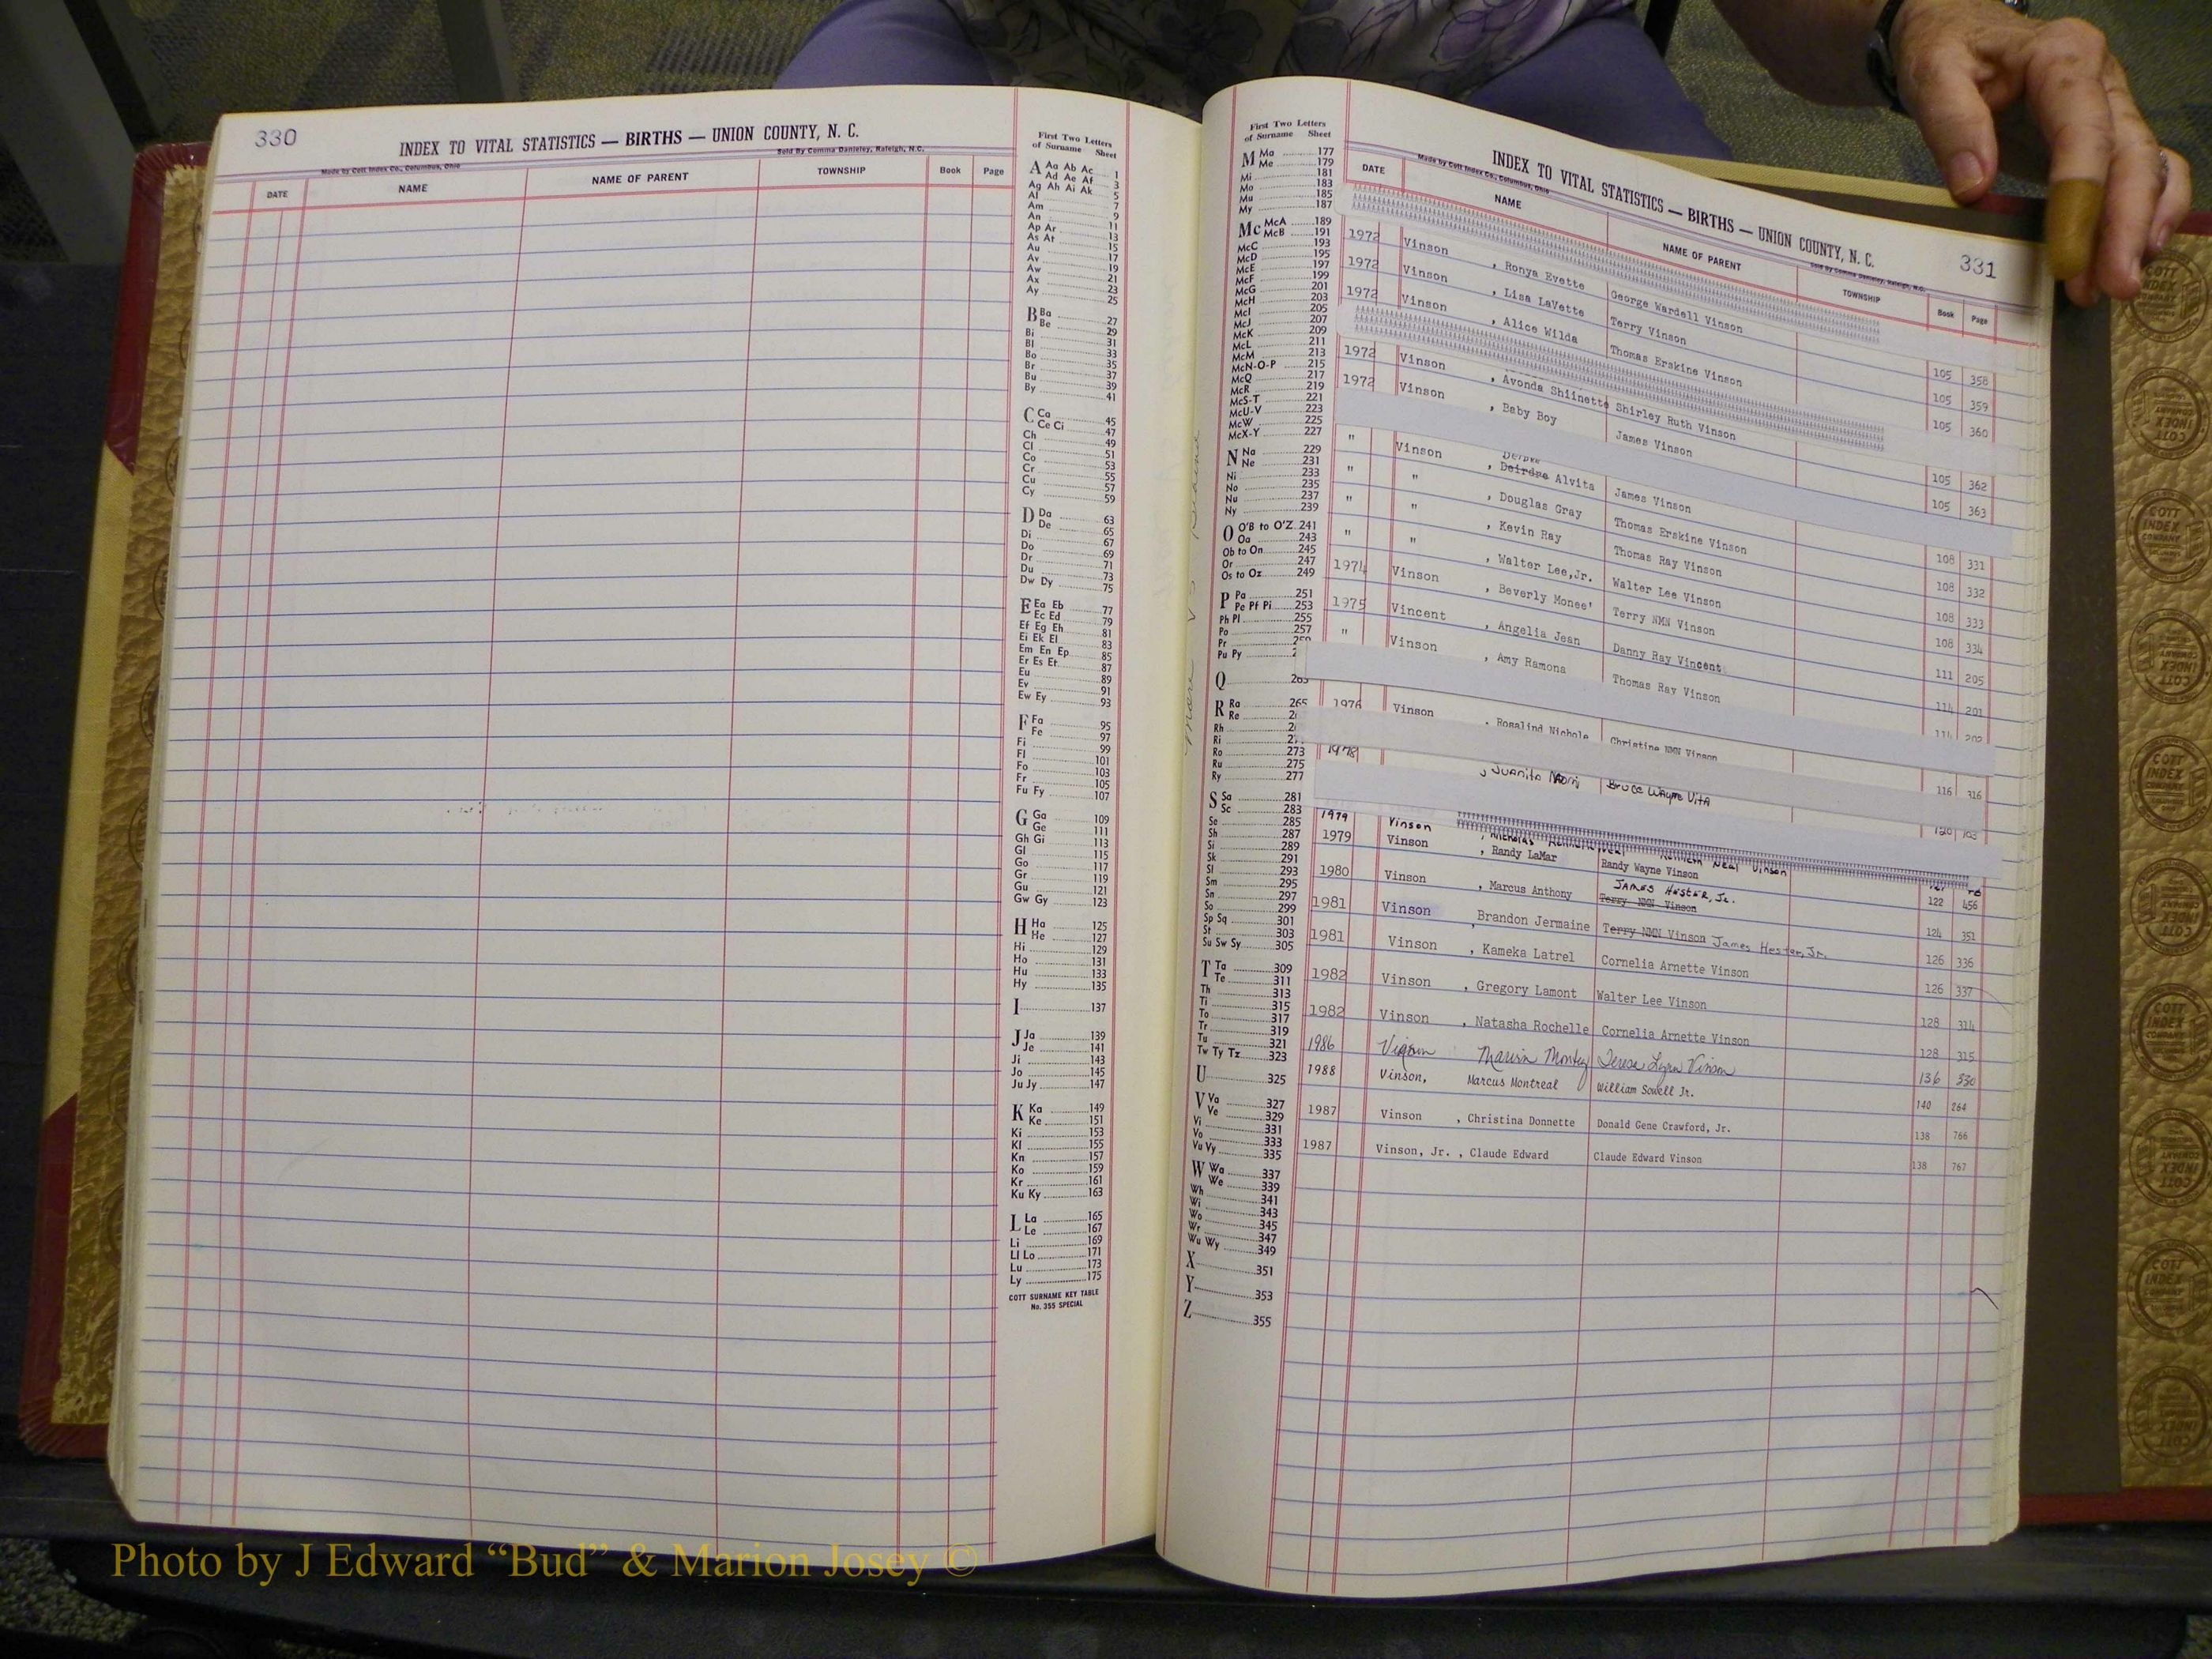 330
INDEX TO VITAL STATISTICS — BIRTHS — UNION COUNTY, N. C.
Made by Cott Index Co., Columbus, Ohio
Sold By Comma Danieley, Raleigh, N.C.
DATE NAME NAME OF PARENT TOWNSHIP Book Page
First Two Letters
of Surname Sheet
A Aa Ab Ac 1
Ad Ae Af 3
Ag Ah Ai Ak 5
Al 7
Am 9
An 11
Ap Ar 13
As At 15
Au 17
Av 19
Aw 21
Ax 23
Ay 25
B Ba 27
Be 29
Bi 31
Bl 33
Bo 35
Br 37
Bu 39
By 41
C Ca 45
Ce Ci 47
Ch 49
Cl 51
Co 53
Cr 55
Cu 57
Cy 59
D Da 63
De 65
Di 67
Do 69
Dr 71
Du 73
Dw Dy 75
E Ea Eb 77
Ec Ed 79
Ef Eg Eh 81
Ei Ek El 83
Em En Ep 85
Er Es Et 87
Eu 89
Ev 91
Ew Ey 93
F Fa 95
Fe 97
Fi 99
Fl 101
Fo 103
Fr 105
Fu Fy 107
G Ga 109
Ge 111
Gh Gi 113
Gl 115
Go 117
Gr 119
Gu 121
Gw Gy 123
H Ha 125
He 127
Hi 129
Ho 131
Hu 133
Hy 135
I 137
J Ja 139
Je 141
Ji 143
Jo 145
Ju Jy 147
K Ka 149
Ke 151
Ki 153
Kl 155
Kn 157
Ko 159
Kr 161
Ku Ky 163
L La 165
Le 167
Li 169
Ll Lo 171
Lu 173
Ly 175
COTT SURNAME KEY TABLE
No. 355 SPECIAL
First Two Letters
of Surname Sheet
M Ma 177
Me 179
Mi 181
Mo 183
Mu 185
My 187
Mc McA 189
McB 191
McC 193
McD 195
McE 197
McF 199
McG 201
McH 203
McI 205
McJ 207
McK 209
McL 211
McM 213
McN-O-P 215
McQ 217
McR 219
McS-T 221
McU-V 223
McW 225
McX-Y 227
N Na 229
Ne 231
Ni 233
No 235
Nu 237
Ny 239
O O'B to O'Z 241
Oa 243
Ob to On 245
Or 247
Os to Oz 249
P Pa 251
Pe Pf Pi 253
Ph Pl 255
Po 257
Pr
Pu Py
Q
R Ra 265
Re
Rh
Ri
Ro 273
Ru 275
Ry 277
S Sa 281
Sc 283
Se 285
Sh 287
Si 289
Sk 291
Sl 293
Sm 295
Sn 297
So 299
Sp Sq 301
St 303
Su Sw Sy 305
T Ta 309
Te 311
Th 313
Ti 315
To 317
Tr 319
Tu 321
Tw Ty Tz 323
U 325
V Va 327
Ve 329
Vi 331
Vo 333
Vu Vy 335
W Wa 337
We 339
Wh 341
Wi 343
Wo 345
Wr 347
Wu Wy 349
X 351
Y 353
Z 355
INDEX TO VITAL STATISTICS — BIRTHS — UNION COUNTY, N. C. 331
Made by Cott Index Co., Columbus, Ohio
Sold By Comma Danieley, Raleigh, N.C.
DATE NAME NAME OF PARENT TOWNSHIP Book Page
1972 Vinson , Ronya Evette George Wardell Vinson 105 358
1972 Vinson , Lisa LaVette Terry Vinson 105 359
1972 Vinson , Alice Wilda Thomas Erskine Vinson 105 360
1972 Vinson , Avonda Shiinette Shirley Ruth Vinson 105 362
1972 Vinson , Baby Boy James Vinson 105 363
" Vinson , Deirdre Alvita James Vinson 108 331
" " , Douglas Gray Thomas Erskine Vinson 108 332
" " , Kevin Ray Thomas Ray Vinson 108 333
" " , Walter Lee,Jr. Walter Lee Vinson 108 334
1974 Vinson , Beverly Monee' Terry NMN Vinson 111 205
1975 Vincent , Angelia Jean Danny Ray Vincent 114 201
" Vinson , Amy Ramona Thomas Ray Vinson 114 202
1976 Vinson , Rosalind Nichole Christine NMN Vinson 116 316
1978 , Juanita Naomi Bruce Wayne Vita
1979 Vinson Neal Vinson
1979 Vinson , Randy LaMar Randy Wayne Vinson 122 456
1980 Vinson , Marcus Anthony Terry NMN Vinson JAMES HESTER, Jr. 124 351
1981 Vinson , Brandon Jermaine Terry NMN Vinson James Hester, Jr. 126 336
1981 Vinson , Kameka Latrel Cornelia Arnette Vinson 126 337
1982 Vinson , Gregory Lamont Walter Lee Vinson 128 314
1982 Vinson , Natasha Rochelle Cornelia Arnette Vinson 128 315
1986 Vinson Teresa Lynn Vinson 136 530
1988 Vinson, Marcus Montreal William Sowell Jr. 140 864
1987 Vinson , Christina Donnette Donald Gene Crawford, Jr. 138 766
1987 Vinson, Jr. , Claude Edward Claude Edward Vinson 138 767
Photo by J Edward “Bud” & Marion Josey ©